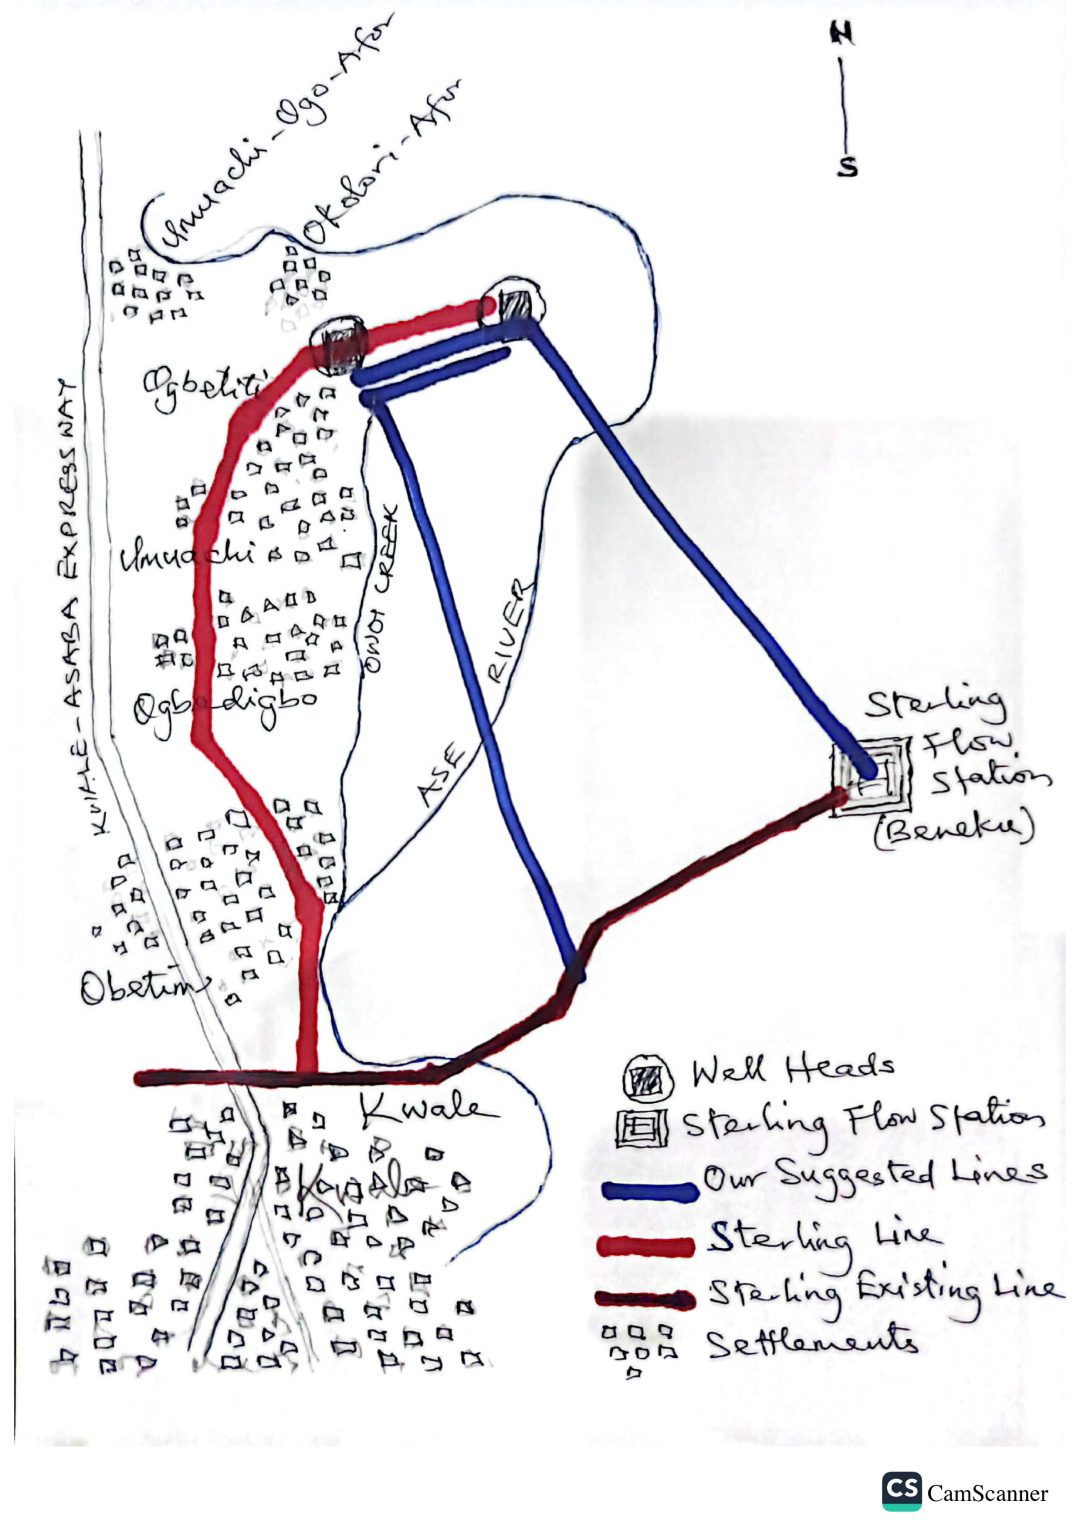 N
S
Umuachi-Ogo-Afor
Okolori-Afor
Ogbetiti
KWALE-ASABA EXPRESSWAY
Umuachi
OWOI CREEK
RIVER
ASE
Ogbedigbo
Sterling
Flow
Station
(Beneku)
Obetim
Kwale
Kwale
Well Heads
Sterling Flow Station
Our Suggested Lines
Sterling Line
Sterling Existing Line
Settlements
CS CamScanner